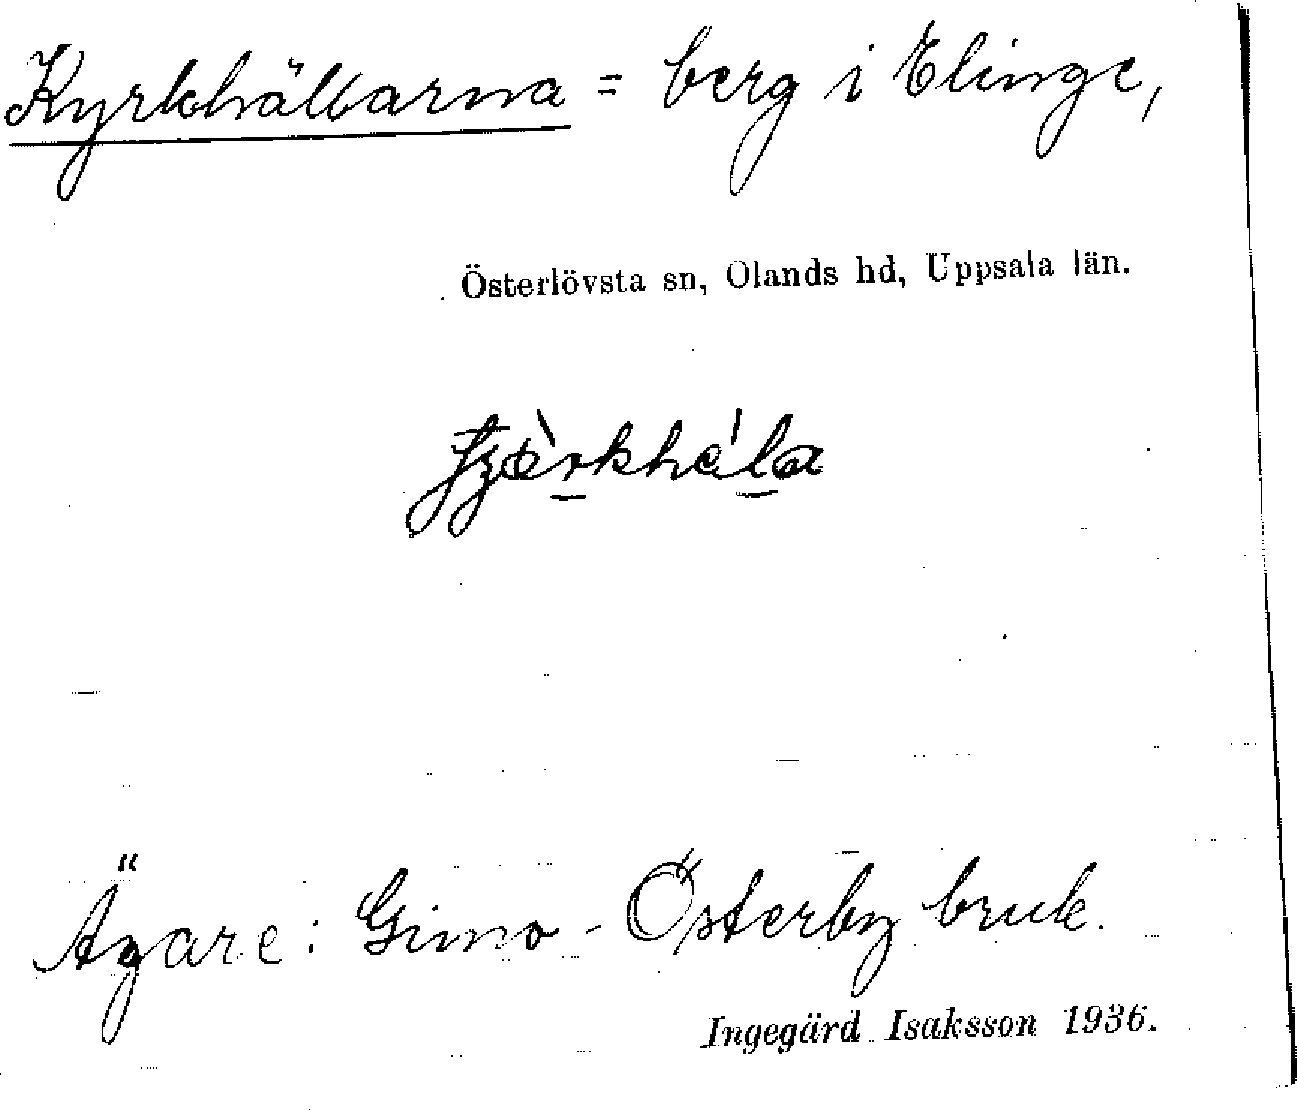 Kyrkhällarna = berg i Elinge,
Österlövsta sn, Olands hd, Uppsala län.
Ägare: Gimo-Österby bruk.
Ingegärd Isaksson 1936.